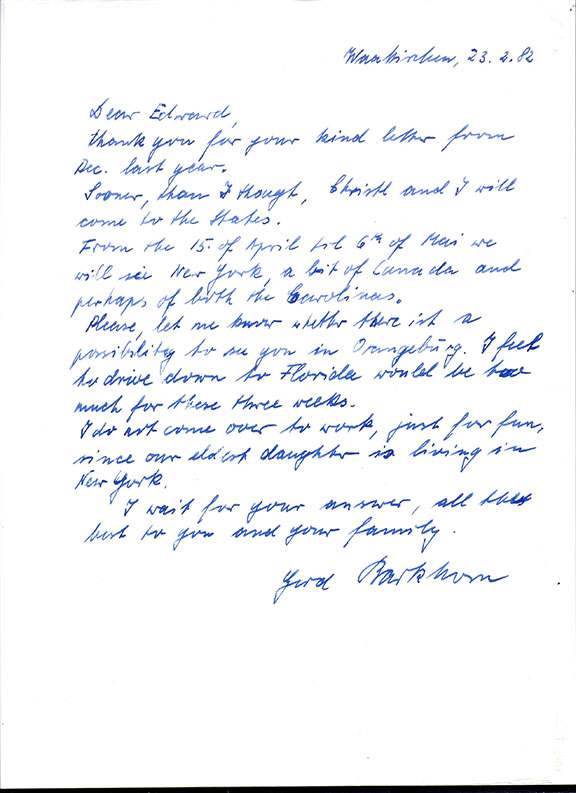 Waakirchen, 23. 2. 82
Dear Edward,
thank you for your kind letter from
Dec. last year.
Sooner, than I thougt, Christl and I will
come to the States.
From the 15. of April til 6th of Mai we
will see New York, a bit of Canada and
perhaps of both the Carolinas.
Please, let me know whether there ist a
possibility to see you in Orangeburg. I feel
to drive down to Florida would be too
much for these three weeks.
I do not come over to work, just for fun,
since our eldest daughter is living in
New York.
I wait for your answer, all the
best to you and your family.
Gerd Barkhorn